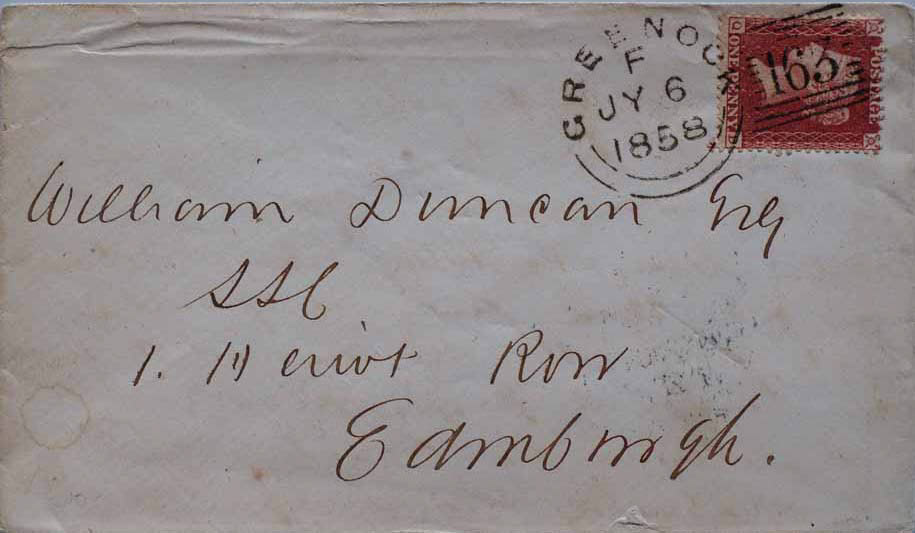 GREENOCK
F
JY 6
1858
163
POSTAGE
ONE PENNY
William Duncan Esq
SSC
1. Heriot Row
Edinburgh.